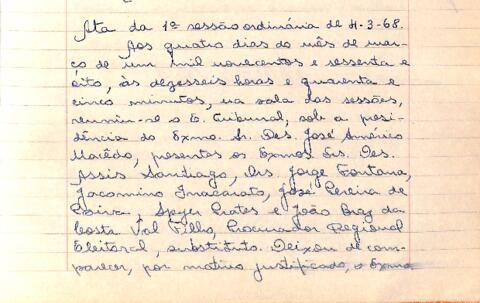 Ata da 1ª sessão ordinária de 4-3-68.
Aos quatro dias do mês de mar-
ço de um mil novecentos e sessenta e
oito, às dezesseis horas e quarenta e
cinco minutos, na sala das sessões,
reuniu-se o E. Tribunal, sob a presi-
dência do Exmo. Sr. Des. José Américo
Macêdo, presentes os Exmos. Srs. Des.
Assis Santiago, Drs. Jorge Fontana,
Jacomino Inacarato, José Pereira de
Paiva, Prates e João Braz da
Costa Val Filho, Procurador Regional
Eleitoral, substituto. Deixou de com-
parecer, por motivo justificado, o Exmo.